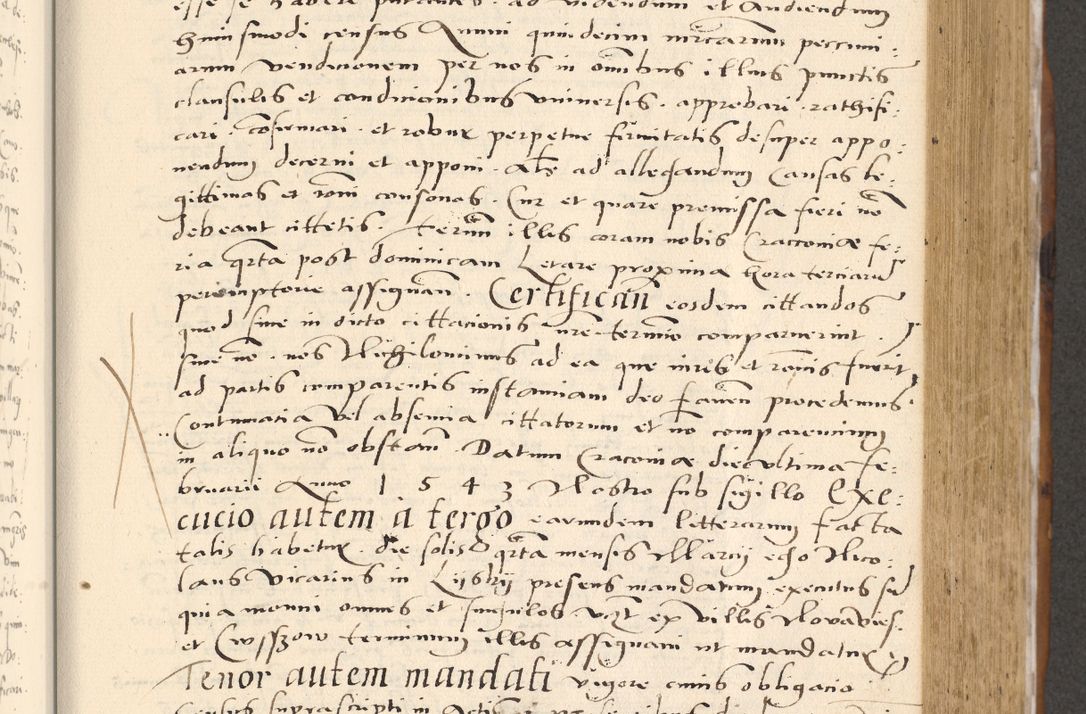 esse se habere putantes ad videndum et Audiendum
huiusmodi census Annui quindecim mrcarum peccuni-
arum vendicionem per nos in omibus illius punctis
clausulis et condicionibus vniuersis. approbari. rathifi-
cari. confirmari. et robur perpetue firmitatis desuper appo-
nendum decerni et apponi. als ad allegandum Causas le-
gittimas et roni consonas. Cur et quare premissa fieri no
debeant cittetis. termn illis coram nobis Cracconiæ fe-
ria qrta post dominicam Letare proxima hora terciarum
peremptorie assignan. Certifican eosdem cittandos
quod siue in dicto cittacionis nre termino comparuerint
siue no. nos Nichilominus ad ea que iuris et racois fuerit
ad partis comparentis instanciam deo fauen procedemus
Contumacia vel absencia cittatorum et no comparencium
in aliquo no obstan. Datum Cracouiæ die vltima fe-
bruarii Anno 1543 Nostro sub sigillo Exe-
cucio autem a tergo earundem litterarum facta
talis habetur. die solis qrta mensis Marcij ego Nico-
laus Vicarius in Lijskij presens mandatum executus su
quia monui omnes et singulos ex villis
et terminum illis assignaui ut mandatur
Tenor autem mandati vigore cuius obligacio
Census suprascripti in Actis